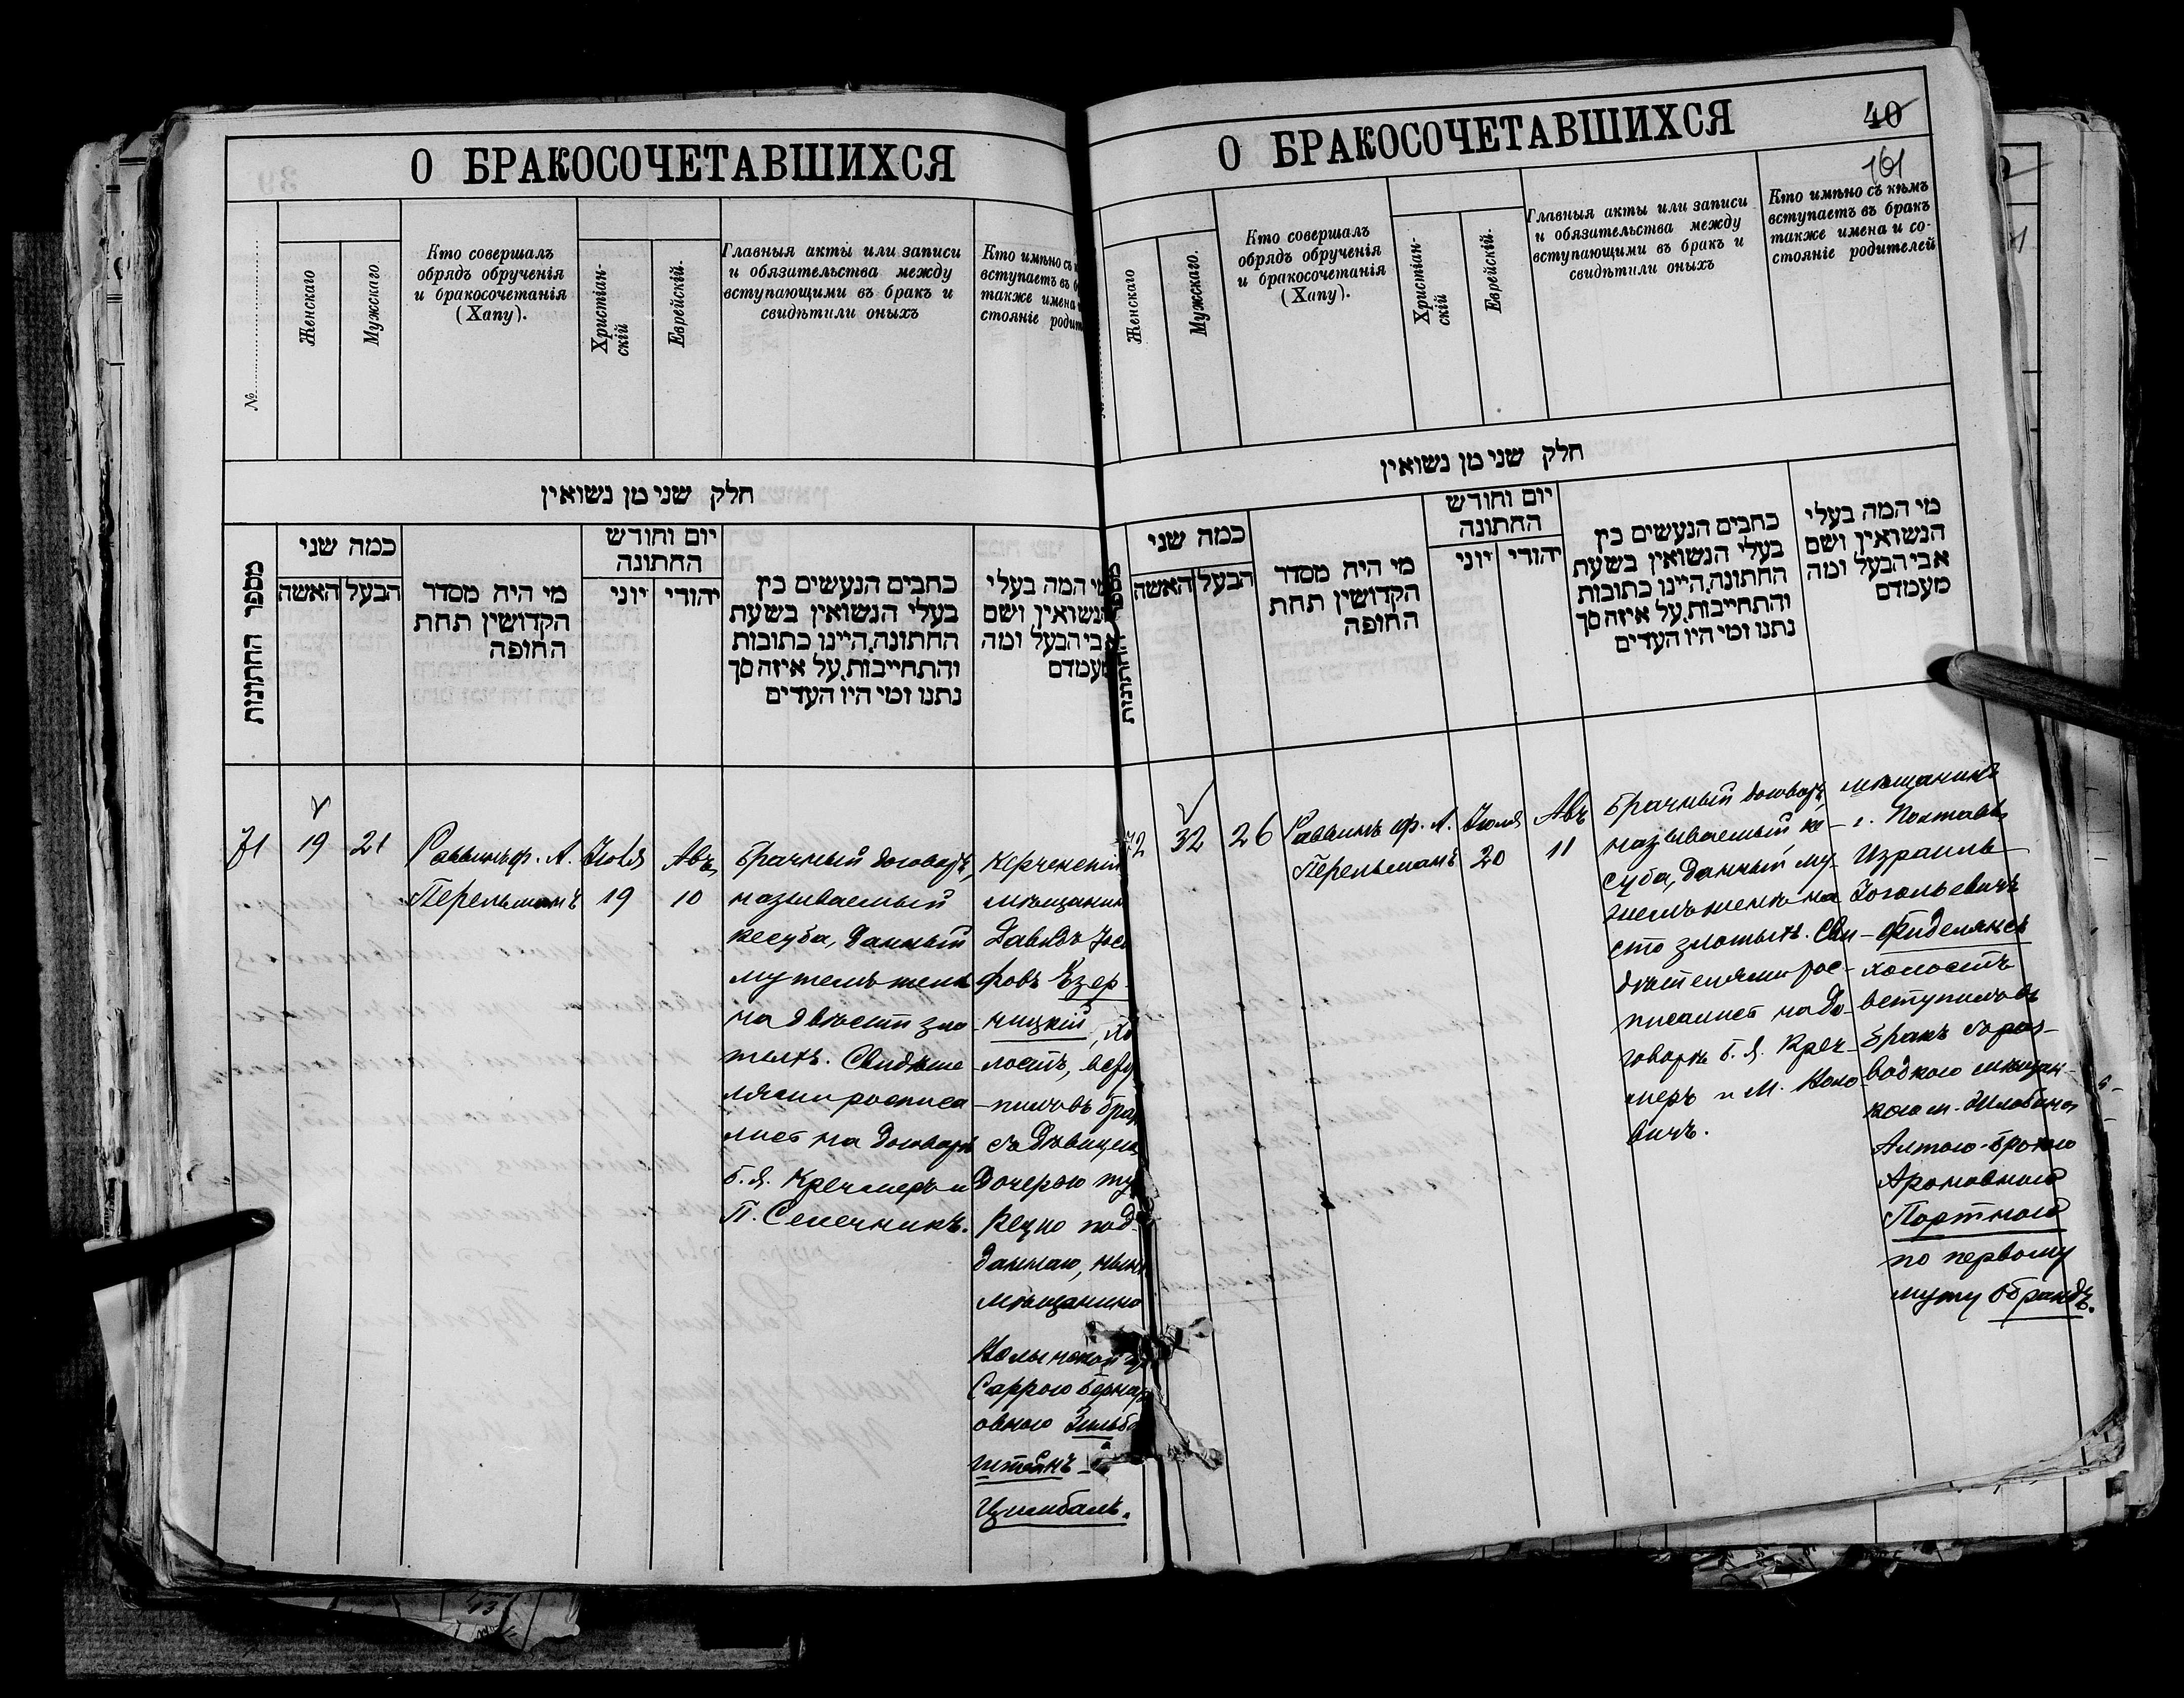 О БРАКОСОЧЕТАВШИХСЯ
№
Женскаго
Мужскаго
Кто совершалъ
обрядъ обрученія
и бракосочетанія
(Хапу).
Христіан-
скій
Еврейскій.
Главныя акты или записи
и обязательства между
вступающими въ бракъ и
свидѣтили оныхъ
Кто имѣно съ
вступаетъ въ
также имена
стояніе
חלק שני מן נשואין
מספר החתונות
כמה שני
האשה
הבעל
מי היה מסדר
הקדושין תחת
החופה
יום וחודש
החתונה
יוני
יהודי
כתבים הנעשים בין
בעלי הנשואין בשעת
החתונה, היינו כתובות
והתחייבות, על איזה סך
נתנו ומי היו העדים
מי המה בעלי
הנשואין ושם
אבי הבעל ומה
מעמדם
71
19
21
Раввинъ ф. А.
Перельманъ
Іюля
19
Авъ
10
Брачный договоръ,
называемый
кесуба, данный
мужемъ женѣ
на двѣсти зло
тыхъ. Свидѣте
лями росписа
лись на договорѣ
Б. Я. Кречмеръ и
П. Сенечникъ.
Керченскій
мѣщанинъ
Давидъ
фовъ Езер-
ницкій,
лостъ,
пилъ въ
съ дѣвицею
дочерью
рецко под-
даннаго,
мѣщанина
Саррою
овною
штейнъ-
Цимбалъ.
О БРАКОСОЧЕТАВШИХСЯ
40
161
Женскаго
Мужскаго.
Кто совершалъ
обрядъ обрученія
и бракосочетанія
(Хапу).
Христіан-
скій
Еврейскій.
Главныя акты или записи
и обязательства между
вступающими въ бракъ и
свидѣтили оныхъ
Кто имѣно съ кѣмъ
вступаетъ въ бракъ
также имена и со-
стояніе родителей
חלק שני מן נשואין
כמה שני
האשה
הבעל
מי היה מסדר
הקדושין תחת
החופה
יום וחודש
החתונה
יוני
יהודי
כתבים הנעשים בין
בעלי הנשואין בשעת
החתונה, היינו כתובות
והתחייבות, על איזה סך
נתנו ומי היו העדים
מי המה בעלי
הנשואין ושם
אבי הבעל ומה
מעמדם
72
32
26
Раввинъ ф. А.
Перельманъ
Іюля
20
Авъ
11
Брачный договоръ,
называемый ке-
суба, данный му-
жемъ женѣ на
сто злотыхъ. Сви-
дѣтелями рос-
писались на до-
говорѣ Б. Я. Креч-
меръ и М. Коло-
вичъ.
мѣщанинъ
г. Полтавы
Израиль
холостъ
вступилъ въ
бракъ съ раз-
водкою мѣщан-
кою м.
Ароновною
Портного
по первому
мужу Брандъ.